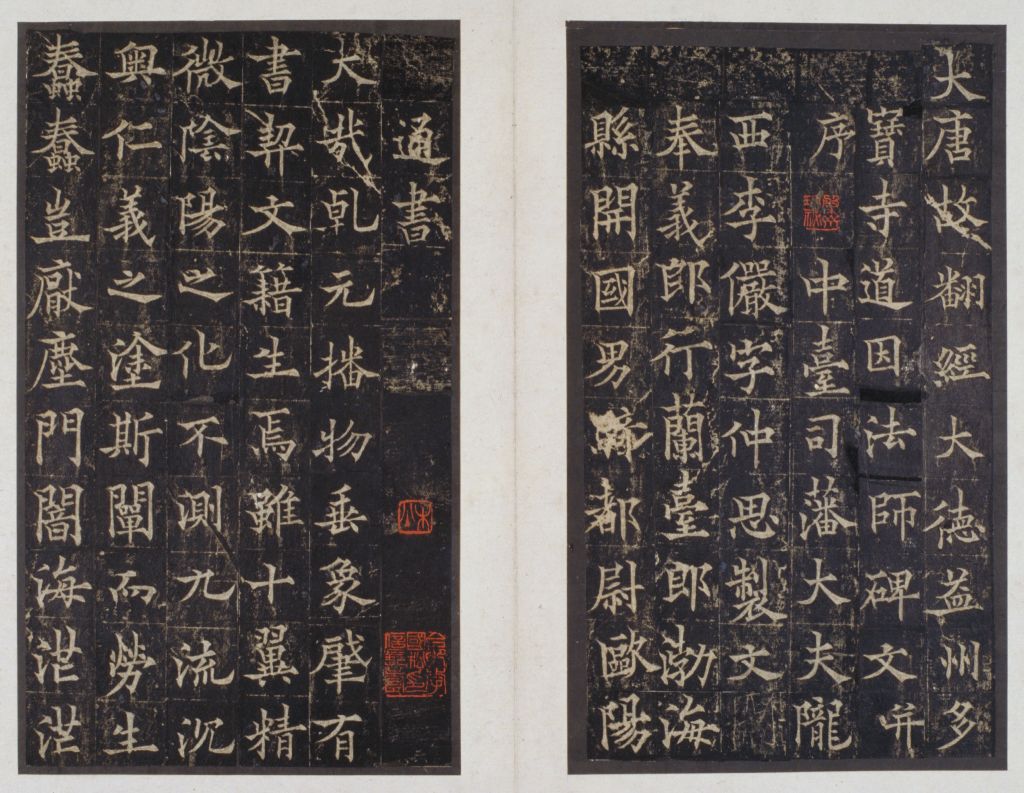 大唐故翻經大德益州多
寶寺道因法師碑文并
序中臺司藩大夫隴
西李儼字仲思製文
奉義郎行蘭臺郎渤海
縣開國男騎都尉歐陽
通書
大哉乾元播物垂象肇有
書契文籍生焉雖十翼精
微陰陽之化不測九流沉
奧仁義之塗斯闡而勞生
蠢蠢豈厭塵門闇海茫茫